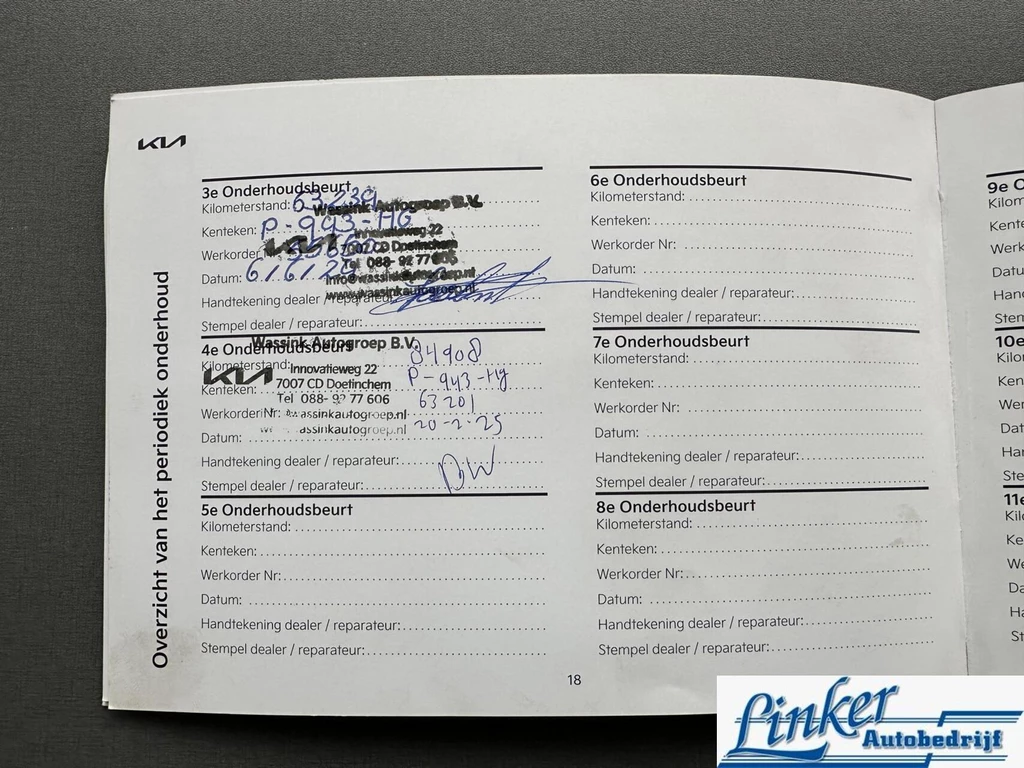 KIA
Overzicht van het periodiek onderhoud
3e Onderhoudsbeurt
Kilometerstand: 63239
Wassink Autogroep B.V.
Kenteken: P-943-HG
Innovatieweg 22
KIA
7007 CD Doetinchem
Werkorder
Tel 088- 92 77 606
Datum: 6/6/24
info@wassinkautogroep.nl
www.wassinkautogroep.nl
Handtekening dealer / reparateur:
Stempel dealer / reparateur:
Wassink Autogroep B.V.
4e Onderhoudsbeurt
Kilometerstand: 84908
Innovatieweg 22
KIA
7007 CD Doetinchem
Kenteken: P-943-Hg
Tel 088- 92 77 606
Werkorder Nr: 63201
wassinkautogroep.nl
assinkautogroep.nl
Datum: 20-2-25
Handtekening dealer / reparateur: DW
Stempel dealer / reparateur:
5e Onderhoudsbeurt
Kilometerstand:
Kenteken:
Werkorder Nr:
Datum:
Handtekening dealer / reparateur:
Stempel dealer / reparateur:
6e Onderhoudsbeurt
Kilometerstand:
Kenteken:
Werkorder Nr:
Datum:
Handtekening dealer / reparateur:
Stempel dealer / reparateur:
7e Onderhoudsbeurt
Kilometerstand:
Kenteken:
Werkorder Nr:
Datum:
Handtekening dealer / reparateur:
Stempel dealer / reparateur:
8e Onderhoudsbeurt
Kilometerstand:
Kenteken:
Werkorder Nr:
Datum:
Handtekening dealer / reparateur:
Stempel dealer / reparateur:
18
9e O
Kilom
Kente
Werk
Datu
Hand
Stem
10e
Kilo
Ken
We
Dat
Har
Ste
11e
Kil
Ke
We
Da
Ha
St
Linker
Autobedrijf